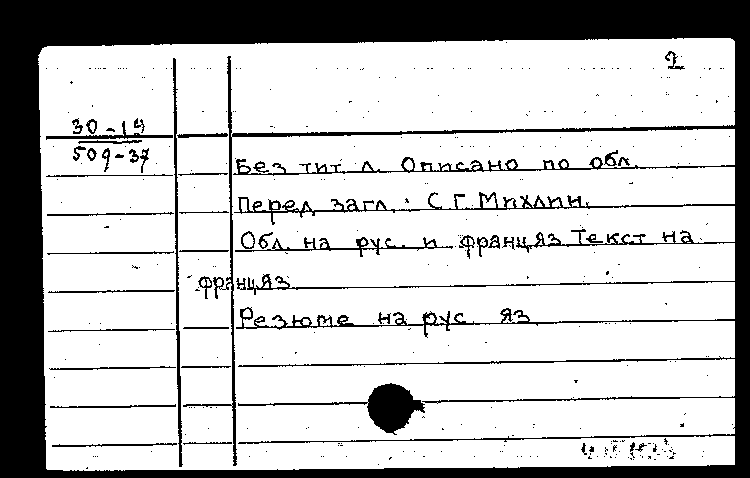 2
30-19
509-37
Без тит. л. Описано по обл.
Перед загл.: С.Г. Михлин.
Обл. на рус. и франц.яз. Текст на
франц.яз.
Резюме на рус. яз.